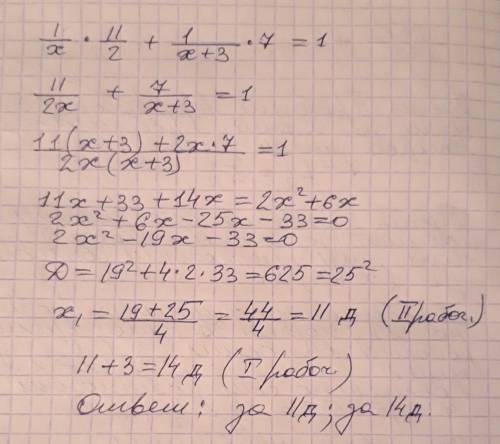 1/x · 11/2 + 1/(x+3) · 7 = 1
11/2x + 7/(x+3) = 1
(11(x+3) + 2x·7)/(2x(x+3)) = 1
11x + 33 + 14x = 2x² + 6x
2x² + 6x - 25x - 33 = 0
2x² - 19x - 33 = 0
Д = 19² + 4·2·33 = 625 = 25²
x₁ = (19+25)/4 = 44/4 = 11 д (II рабоч.)
11 + 3 = 14 д (I рабоч.)
Ответ: за 11д; за 14д.